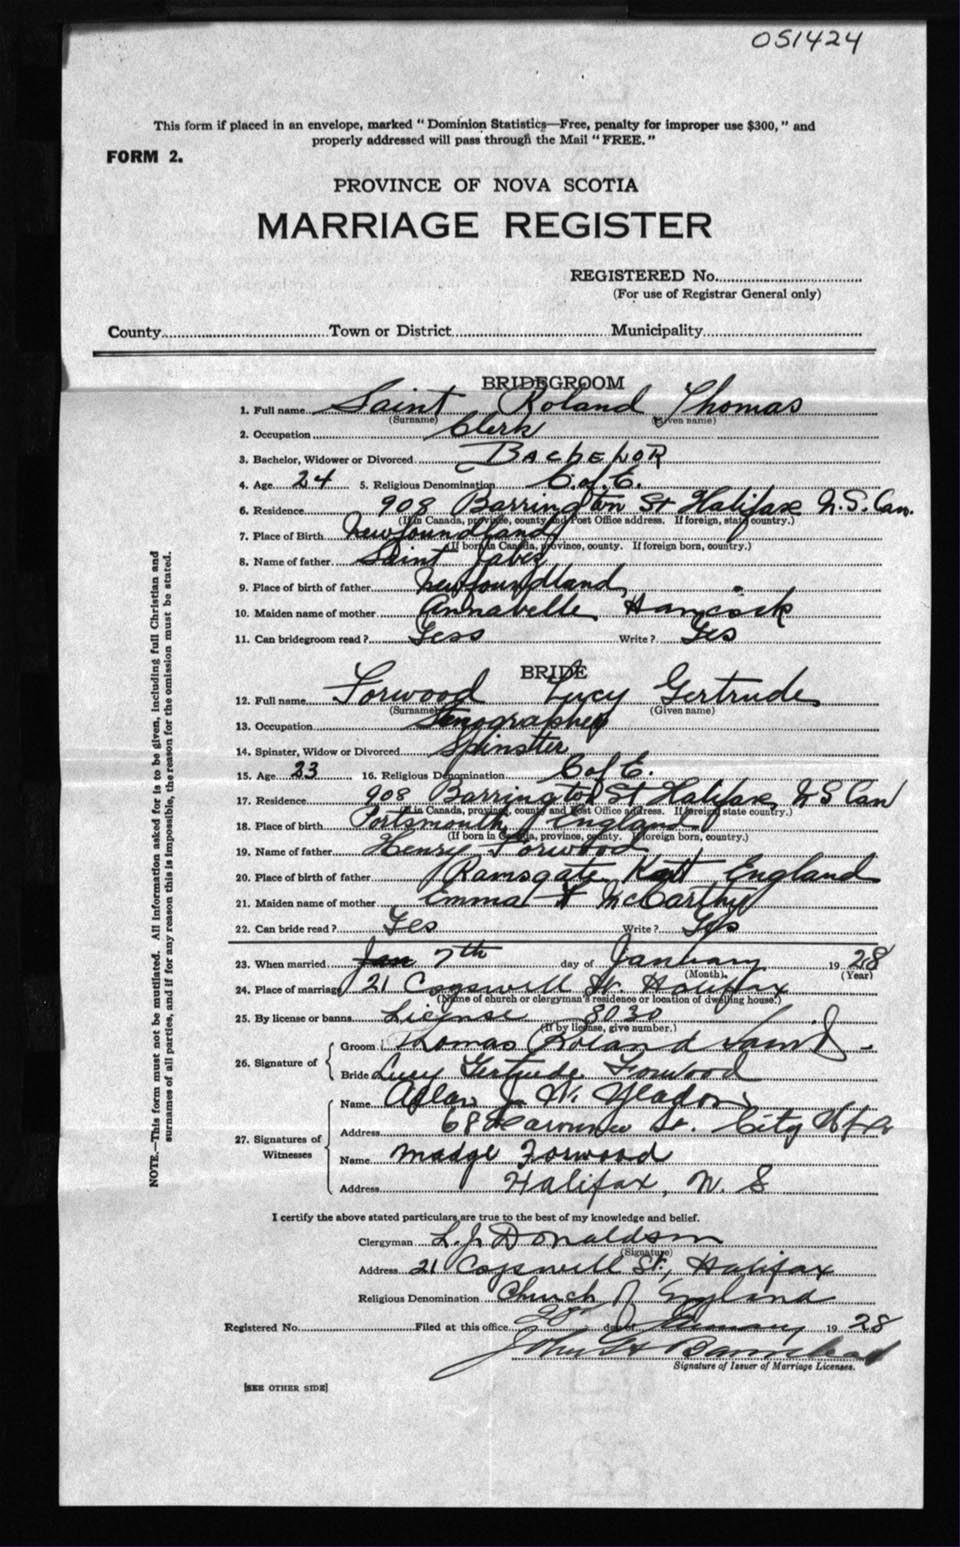 051424
This form if placed in an envelope, marked "Dominion Statistics—Free, penalty for improper use $300," and
properly addressed will pass through the Mail "FREE."
FORM 2.
PROVINCE OF NOVA SCOTIA
MARRIAGE REGISTER
REGISTERED No.
(For use of Registrar General only)
County Town or District Municipality
BRIDEGROOM
1. Full name Saint Roland Thomas
(Surname) (Given name)
2. Occupation Clerk
3. Bachelor, Widower or Divorced BACHELOR
4. Age 24 5. Religious Denomination C. of. E.
6. Residence 908 Barrington St Halifax N.S. Can.
(If in Canada, province, county and Post Office address. If foreign, state country.)
7. Place of Birth Newfoundland
(If born in Canada, province, county. If foreign born, country.)
8. Name of father Saint Jabez
9. Place of birth of father Newfoundland
10. Maiden name of mother Annabelle Hancock
11. Can bridegroom read? Yess Write? Yes
BRIDE
12. Full name Forwood Lucy Gertrude
(Surname) (Given name)
13. Occupation Stenographer
14. Spinster, Widow or Divorced Spinster
15. Age 23 16. Religious Denomination C of E.
17. Residence 908 Barrington St Halifax, N S Can
(If in Canada, province, county and Post Office address. If foreign state country.)
18. Place of birth Portsmouth England
(If born in Canada, province, county. If foreign born, country.)
19. Name of father Henry Forwood
20. Place of birth of father Ramsgate Kent England
21. Maiden name of mother Emma McCarthy
22. Can bride read? Yes Write? Yes
23. When married Jan 7th day of January 1928
(Month) (Year)
24. Place of marriage 21 Cogswell St. Halifax
(Name of church or clergyman's residence or location of dwelling house.)
25. By license or banns License 8030
(If by license, give number.)
26. Signature of Groom Thomas Roland Saint
Bride Lucy Gertrude Forwood
27. Signatures of Witnesses
Name J. W. Yeadon
Address 68 St. City
Name Madge Forwood
Address Halifax, N. S
I certify the above stated particulars are true to the best of my knowledge and belief.
Clergyman L. J. Donaldson
(Signature)
Address 21 Cogswell St., Halifax
Religious Denomination Church of England
Registered No. Filed at this office day of 1928
Signature of Issuer of Marriage Licenses.
[SEE OTHER SIDE]
NOTE.—This form must not be mutilated. All information asked for is to be given, including full Christian and
surnames of all parties, and if for any reason this is impossible, the reason for the omission must be stated.